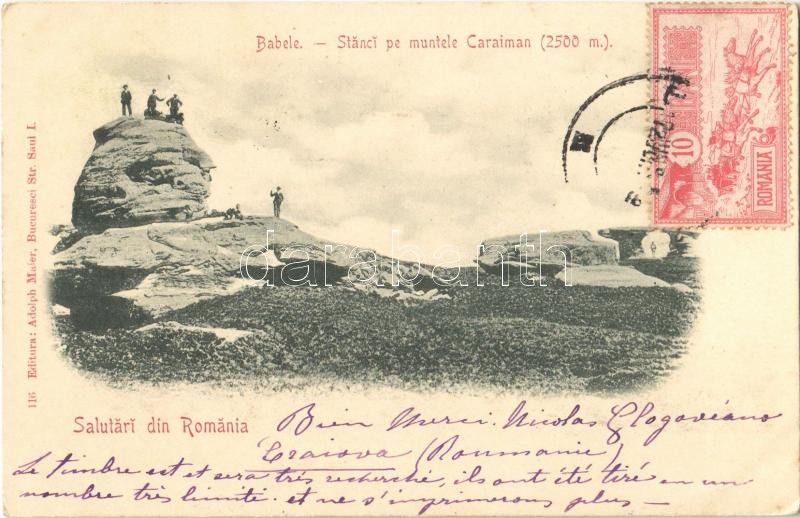 Babele. – Stâncĭ pe muntele Caraiman (2500 m.).
10
ROMÂNIA
116 Editura: Adolph Maier, Bucuresci Str. Saul I.
darabanth
Salutărĭ din România
Bien Merci. Nicolas Glogovéano
Craiova (Roumanie)
Le timbre est et sera très recherché, ils ont été tiré en un
nombre très limité. et ne s'imprimerons plus —